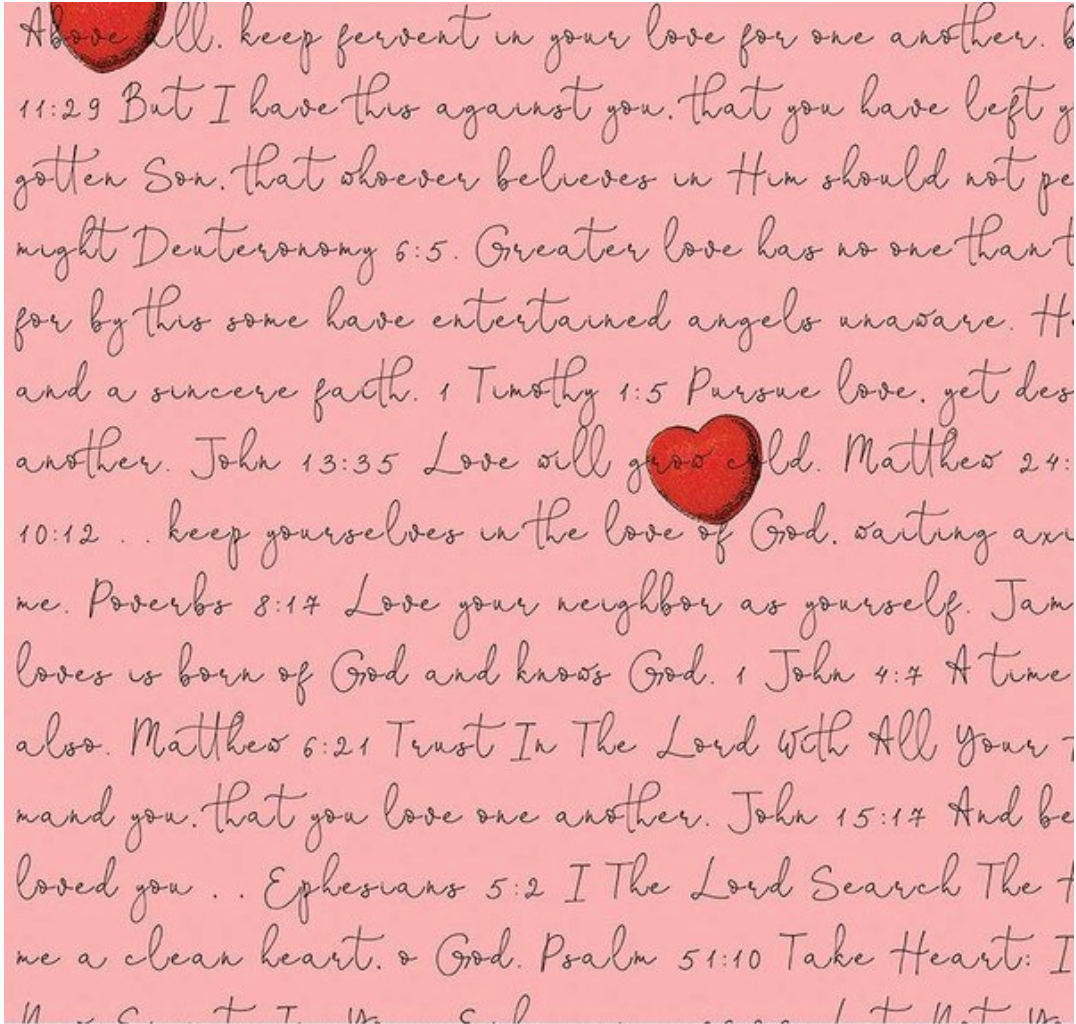 Above all, keep fervent in your love for one another, b
11:29 But I have this against you, that you have left y
gotten Son, that whoever believes in Him should not pe
might Deuteronomy 6:5. Greater love has no one than t
for by this some have entertained angels unaware. H
and a sincere faith. 1 Timothy 1:5 Pursue love, yet des
another. John 13:35 Love will grow cold. Matthew 24:
10:12 .. keep yourselves in the love of God, waiting axi
me. Poverbs 8:17 Love your neighbor as yourself. Jam
loves is born of God and knows God. 1 John 4:7 A time
also. Matthew 6:21 Trust In The Lord With All Your
mand you, that you love one another. John 15:17 And be
loved you .. Ephesians 5:2 I The Lord Search The
me a clean heart, o God. Psalm 51:10 Take Heart: I